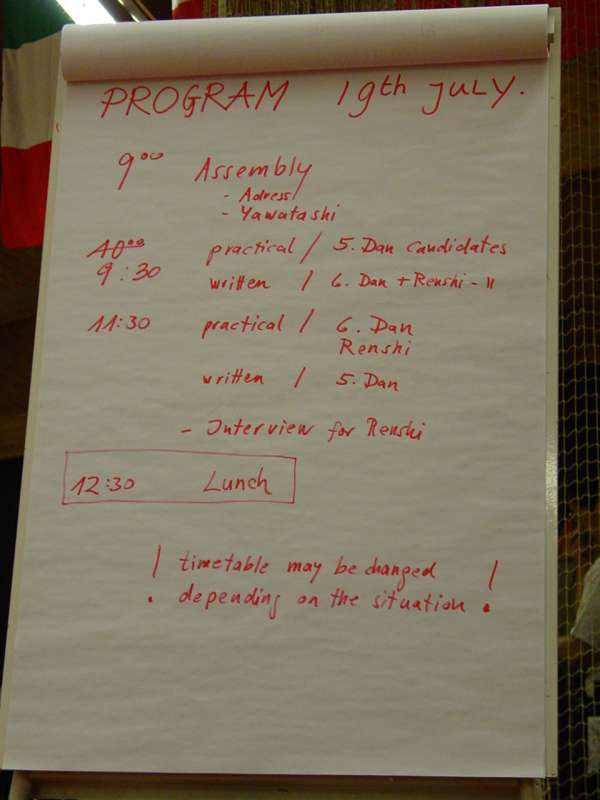 PROGRAM 19th JULY.
9⁰⁰ Assembly
- Adress
- Yawatashi
10⁰⁰ practical / 5. Dan candidates
9:30 written / 6. Dan + Renshi - "
11:30 practical / 6. Dan
Renshi
written / 5. Dan
- Interview for Renshi
12:30 Lunch
! timetable may be changed !
depending on the situation